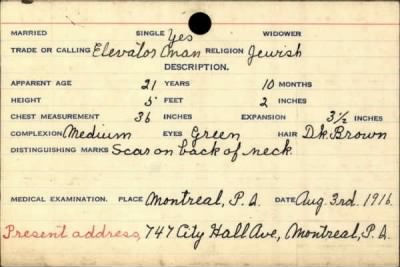 MARRIED SINGLE Yes WIDOWER
TRADE OR CALLING Elevator man RELIGION Jewish
DESCRIPTION.
APPARENT AGE 21 YEARS 10 MONTHS
HEIGHT 5 FEET 2 INCHES
CHEST MEASUREMENT 36 INCHES EXPANSION 3½ INCHES
COMPLEXION Medium EYES Green HAIR Dk. Brown
DISTINGUISHING MARKS Scar on back of neck.
MEDICAL EXAMINATION. PLACE Montreal, P.Q. DATE Aug. 3rd. 1916.
Present address, 747 City Hall Ave, Montreal, P.Q.